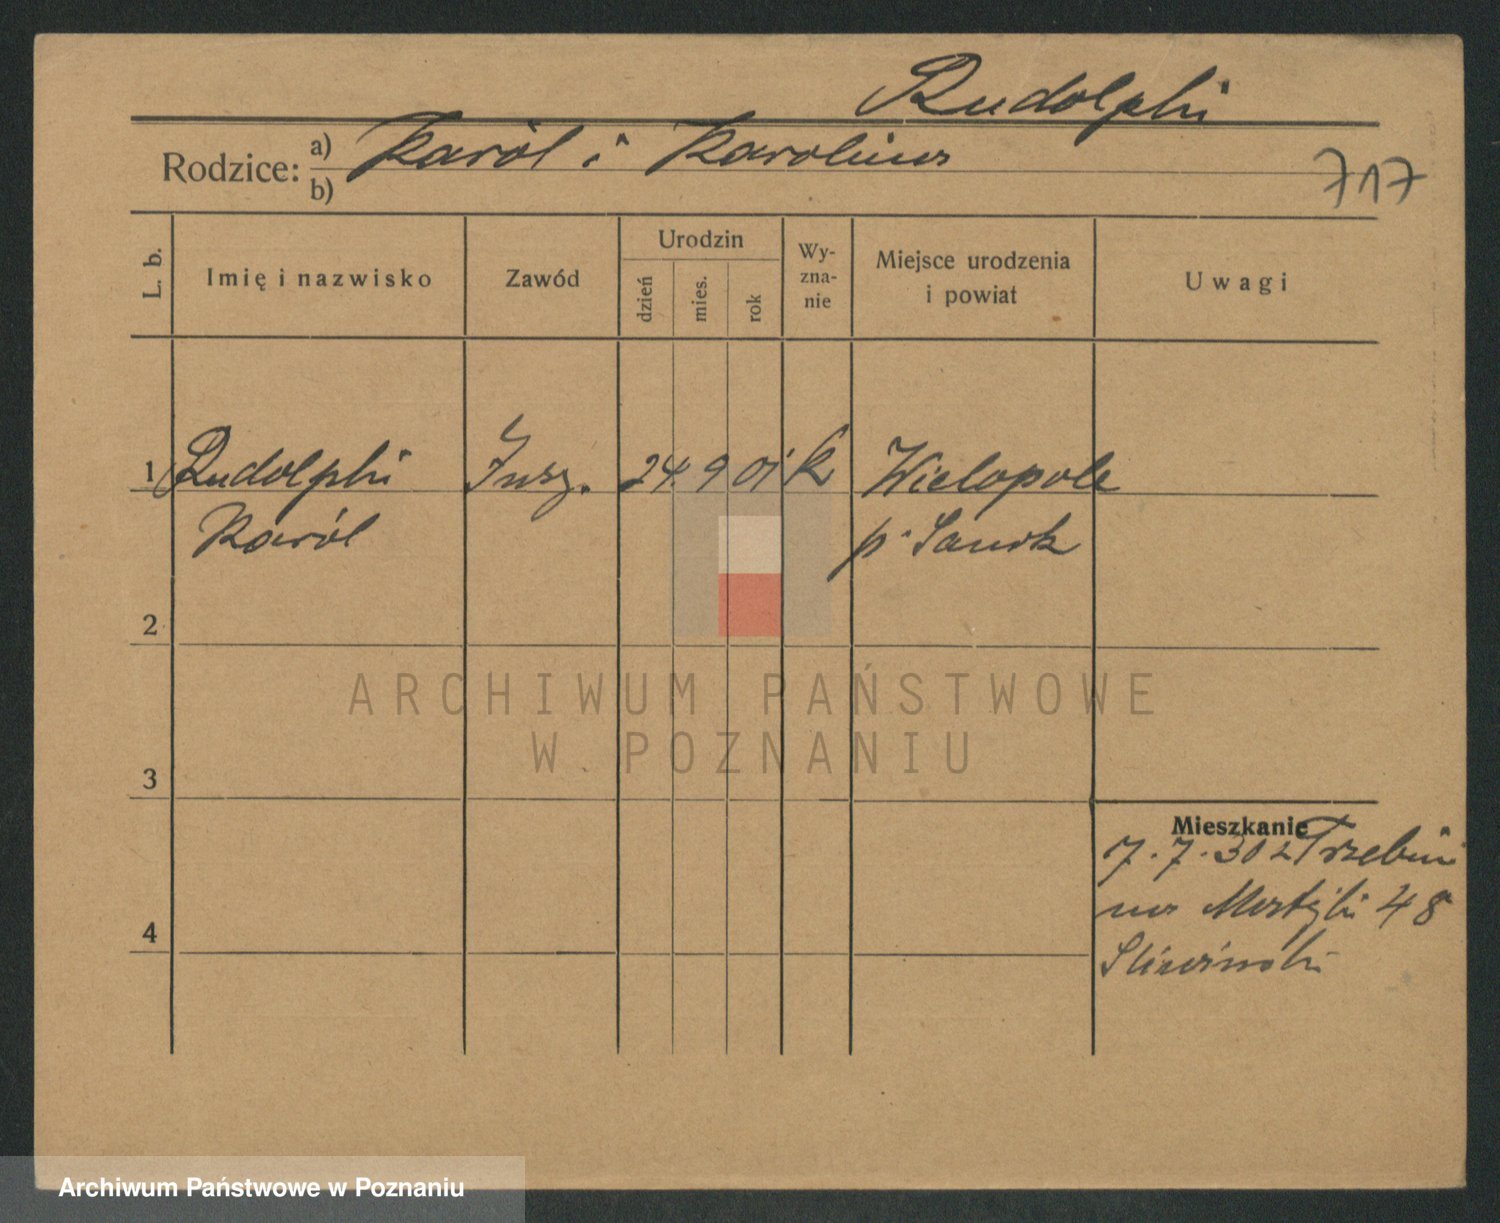 Rudolphi
Rodzice: a) Karól i Karolina
b)
717
L. b.
Imię i nazwisko
Zawód
Urodzin
dzień
mies.
rok
Wy-
zna-
nie
Miejsce urodzenia
i powiat
Uwagi
1 Rudolphi Insz. 24 9 01 k Wielopole
Karól p. Sanok
2
3
4
Mieszkanie
7.7.30 z Trzebini
na 48
Śliwiński
ARCHIWUM PAŃSTWOWE
W POZNANIU
Archiwum Państwowe w Poznaniu